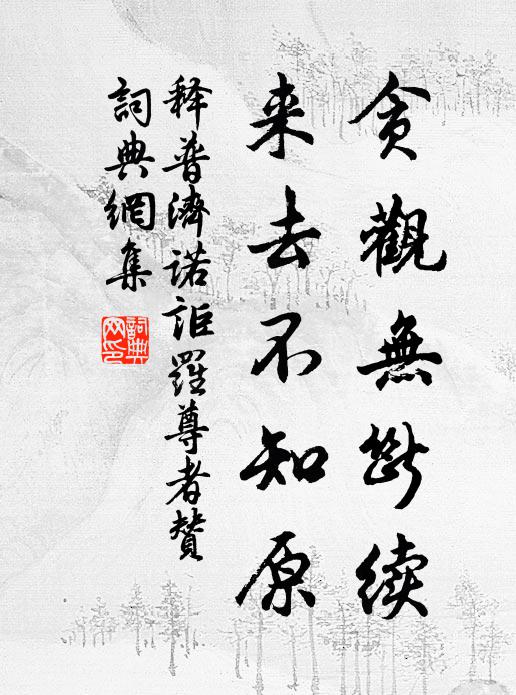 贪觀無断续
来去不知原
释普濟诺詎羅尊者赞
詞典網集
詞典
网印